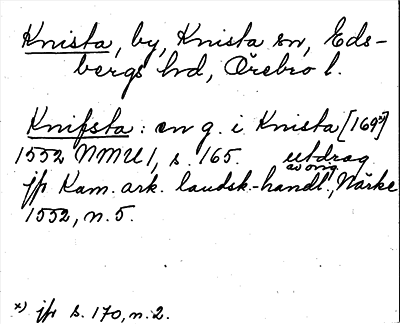 Knista, by, Knista sn, Eds-
bergs hd, Örebro l.
Knifsta: en g. i Knista [169x)]
1552 NMU 1, s. 165. utdrag
av orig.
jfr Kam. ark. landsk.-handl., Närke
1552, n. 5.
x) jfr s. 170, n. 2.